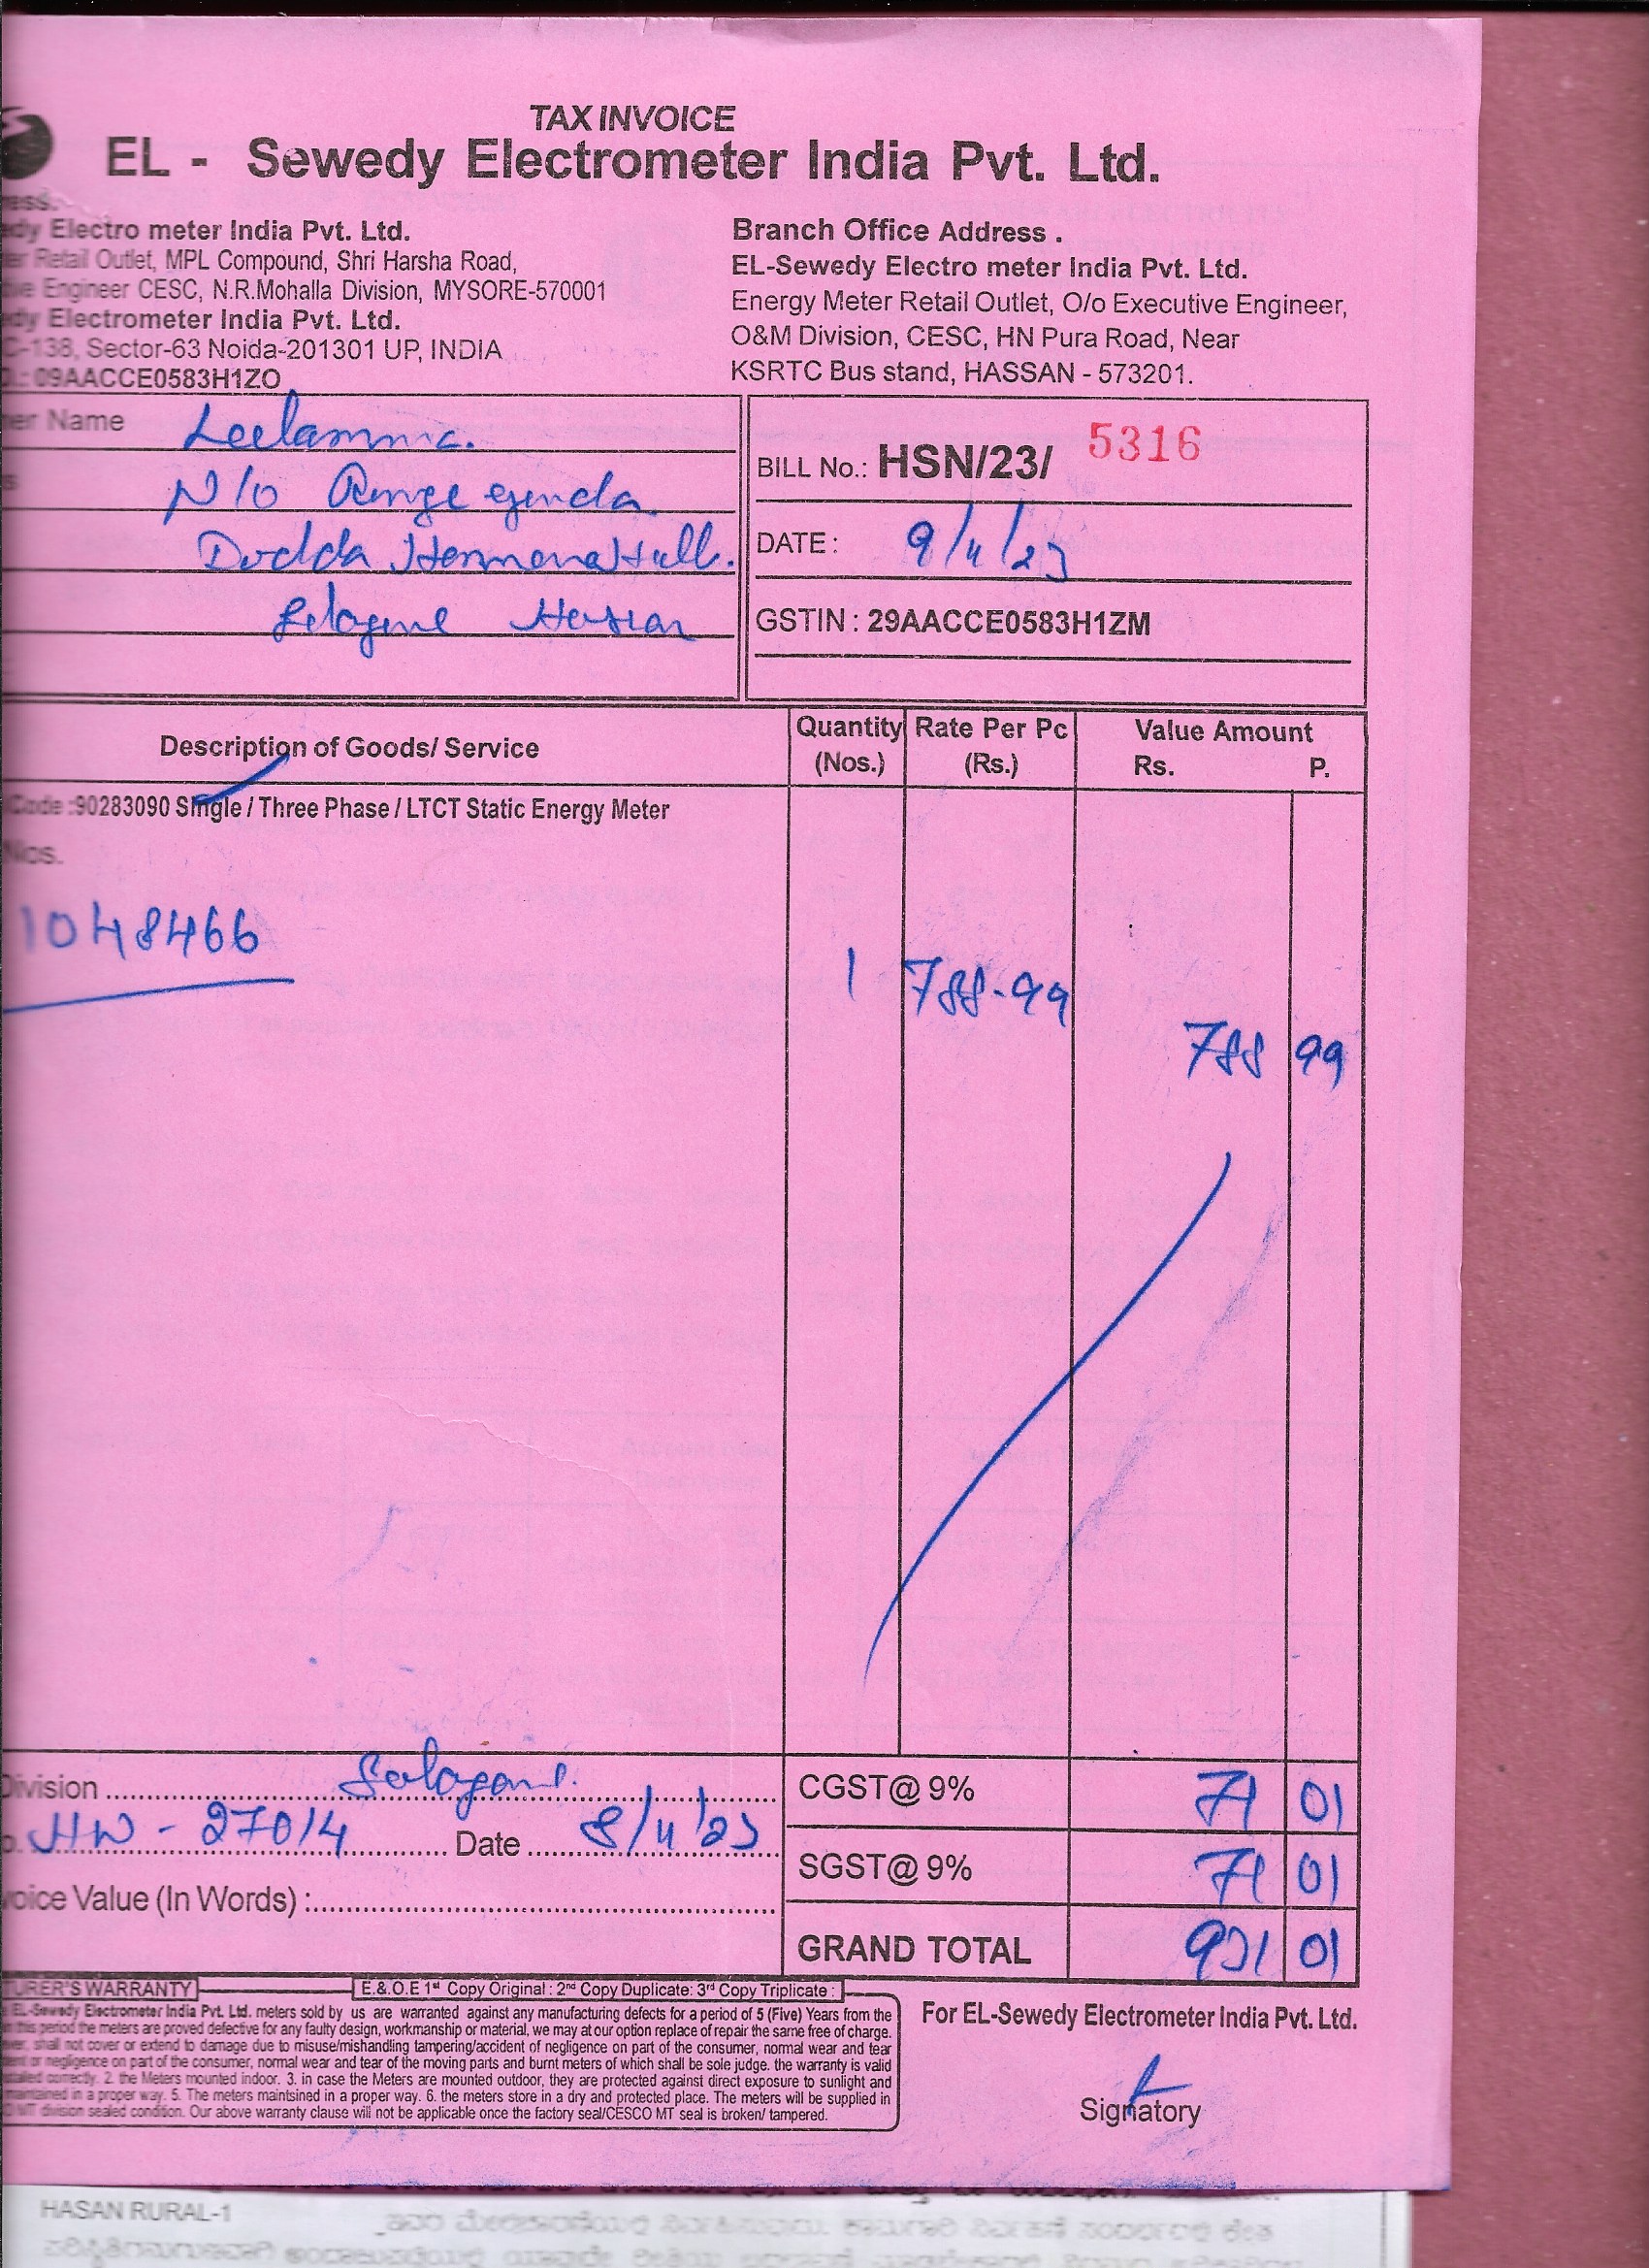 TAX INVOICE
EL - Sewedy Electrometer India Pvt. Ltd.
Electro meter India Pvt. Ltd.
Retail Outlet, MPL Compound, Shri Harsha Road,
Engineer CESC, N.R.Mohalla Division, MYSORE-570001
Electrometer India Pvt. Ltd.
C-138, Sector-63 Noida-201301 UP, INDIA
09AACCE0583H1ZO
Branch Office Address .
EL-Sewedy Electro meter India Pvt. Ltd.
Energy Meter Retail Outlet, O/o Executive Engineer,
O&M Division, CESC, HN Pura Road, Near
KSRTC Bus stand, HASSAN - 573201.
Name Leelamma.
Dodda
Hassan
BILL No.: HSN/23/ 5316
DATE : 9/11/23
GSTIN : 29AACCE0583H1ZM
Description of Goods/ Service Quantity (Nos.) Rate Per Pc (Rs.) Value Amount Rs. P.
Code :90283090 Single / Three Phase / LTCT Static Energy Meter
Nos.
1048466
1 788-99
788 99
Division
HW - 27014 Date 8/11/23
Value (In Words) :
CGST@ 9% 71 01
SGST@ 9% 71 01
GRAND TOTAL 931 01
WARRANTY E.&.O.E 1st Copy Original : 2nd Copy Duplicate: 3rd Copy Triplicate :
EL-Sewedy Electrometer India Pvt. Ltd. meters sold by us are warranted against any manufacturing defects for a period of 5 (Five) Years from the
this period the meters are proved defective for any faulty design, workmanship or material, we may at our option replace of repair the same free of charge.
shall not cover or extend to damage due to misuse/mishandling tampering/accident of negligence on part of the consumer, normal wear and tear
or negligence on part of the consumer, normal wear and tear of the moving parts and burnt meters of which shall be sole judge. the warranty is valid
correctly. 2. the Meters mounted indoor. 3. in case the Meters are mounted outdoor, they are protected against direct exposure to sunlight and
maintained in a proper way. 5. The meters maintsined in a proper way. 6. the meters store in a dry and protected place. The meters will be supplied in
MT division sealed condition. Our above warranty clause will not be applicable once the factory seal/CESCO MT seal is broken/ tampered.
For EL-Sewedy Electrometer India Pvt. Ltd.
Signatory
HASAN RURAL-1